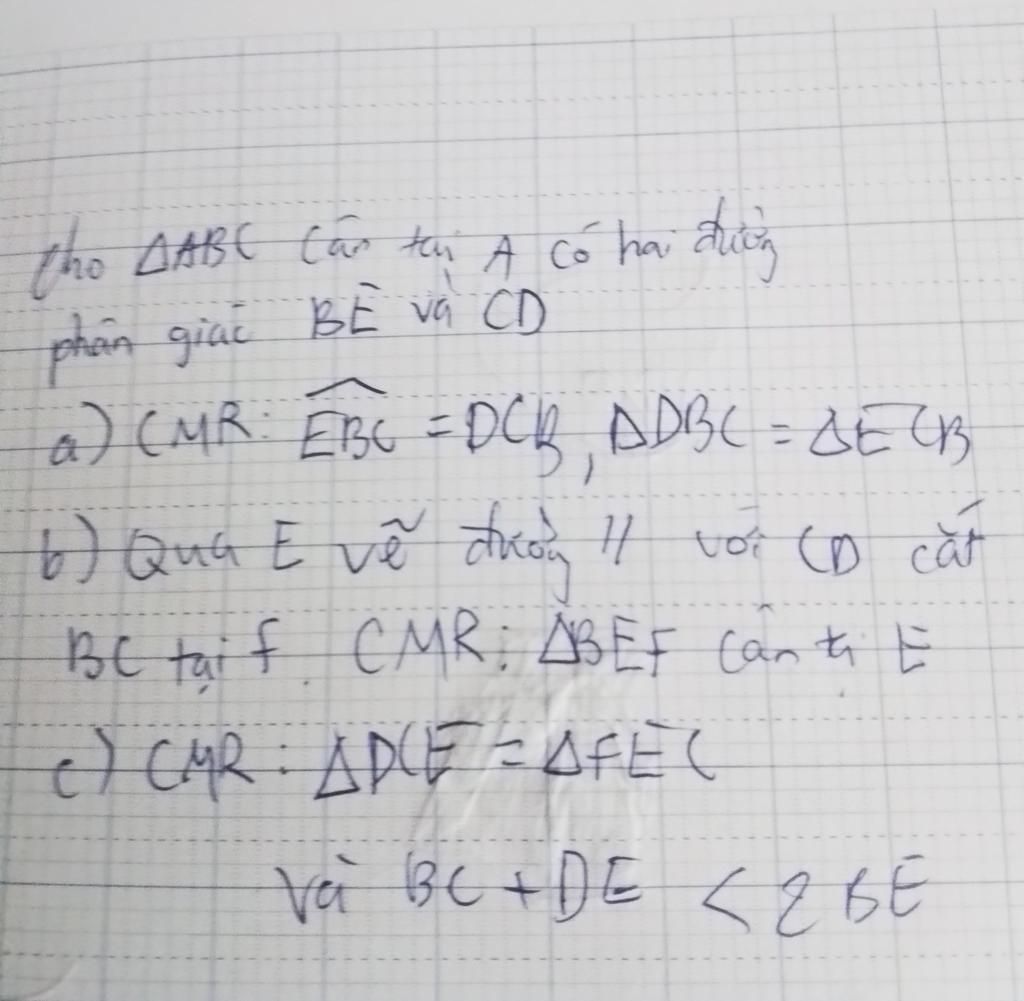 Cho ΔABC Cân tại A có hai đường
phân giác BE và CD
a) CMR: \widehat{EBC} = DCB, ΔDBC = ΔECB
b) Qua E vẽ đường // với CD cắt
BC tại f. CMR: ΔBEF Cân tị E
c) CMR: ΔDCE = ΔFEC
Và BC + DE < 2 BE